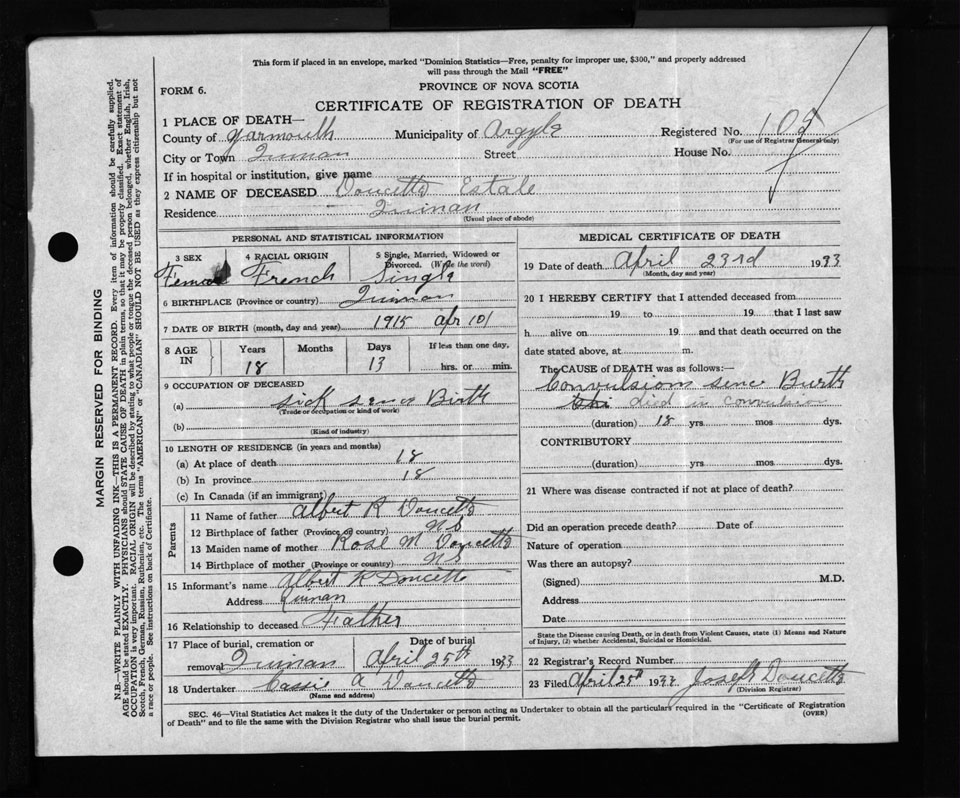 This form if placed in an envelope, marked "Dominion Statistics—Free, penalty for improper use, $300," and properly addressed
will pass through the Mail "FREE"
FORM 6.
PROVINCE OF NOVA SCOTIA
CERTIFICATE OF REGISTRATION OF DEATH
1 PLACE OF DEATH—
County of Yarmouth Municipality of Argyle Registered No. 105
(For use of Registrar General only)
City or Town Quinan Street House No.
If in hospital or institution, give name
2 NAME OF DECEASED Doucette Estale
Residence Quinan
(Usual place of abode)
PERSONAL AND STATISTICAL INFORMATION
3 SEX 4 RACIAL ORIGIN 5 Single, Married, Widowed or Divorced. (Write the word)
Female French Single
6 BIRTHPLACE (Province or country) Quinan
7 DATE OF BIRTH (month, day and year) 1915 Apr 10
8 AGE IN Years Months Days If less than one day,
18 13 hrs. or min.
9 OCCUPATION OF DECEASED
(a) sick sence Birth
(Trade or occupation or kind of work)
(b)
(Kind of industry)
10 LENGTH OF RESIDENCE (in years and months)
(a) At place of death 18
(b) In province 18
(c) In Canada (if an immigrant)
Parents
11 Name of father Albert R Doucette
12 Birthplace of father (Province or country) NS
13 Maiden name of mother Rose M Doucette
14 Birthplace of mother (Province or country) NS
15 Informant's name Albert R Doucette
Address Quinan
16 Relationship to deceased Father
17 Place of burial, cremation or Date of burial
removal Quinan April 25th 1933
18 Undertaker Cassie A Doucette
(Name and address)
MEDICAL CERTIFICATE OF DEATH
19 Date of death April 23rd 1933
(Month, day and year)
20 I HEREBY CERTIFY that I attended deceased from
19 to 19 that I last saw
h alive on 19 and that death occurred on
date stated above, at m.
The CAUSE OF DEATH was as follows:
Convulsions sence Burth
died in convulsion
(duration) 18 yrs mos dys.
CONTRIBUTORY
(duration) yrs mos dys.
21 Where was disease contracted if not at place of death?
Did an operation precede death? Date of
Nature of operation
Was there an autopsy?
(Signed) M.D.
Address
Date
State the Disease causing Death, or in death from Violent Causes, state (1) Means and Nature
of Injury, (2) whether Accidental, Suicidal or Homicidal.
22 Registrar's Record Number
23 Filed April 25th 1933 Joseph Doucette
(Division Registrar)
SEC. 46—Vital Statistics Act makes it the duty of the Undertaker or person acting as Undertaker to obtain all the particulars required in the "Certificate of Registration
of Death" and to file the same with the Division Registrar who shall issue the burial permit.
(OVER)
MARGIN RESERVED FOR BINDING
N.B.—WRITE PLAINLY WITH UNFADING INK—THIS IS A PERMANENT RECORD. Every item of information should be carefully supplied.
AGE should be stated EXACTLY. PHYSICIANS should STATE CAUSE OF DEATH in plain terms, so that it may be properly classified. Exact statement of
OCCUPATION is very important. RACIAL ORIGIN will be described by stating to what people or tongue the deceased person belonged, whether English, Irish,
Scotch, French, German, Russian, Ruthenian, etc. The terms "AMERICAN" or "CANADIAN" SHOULD NOT BE USED as they express citizenship but not
a race or people. See instructions on back of Certificate.